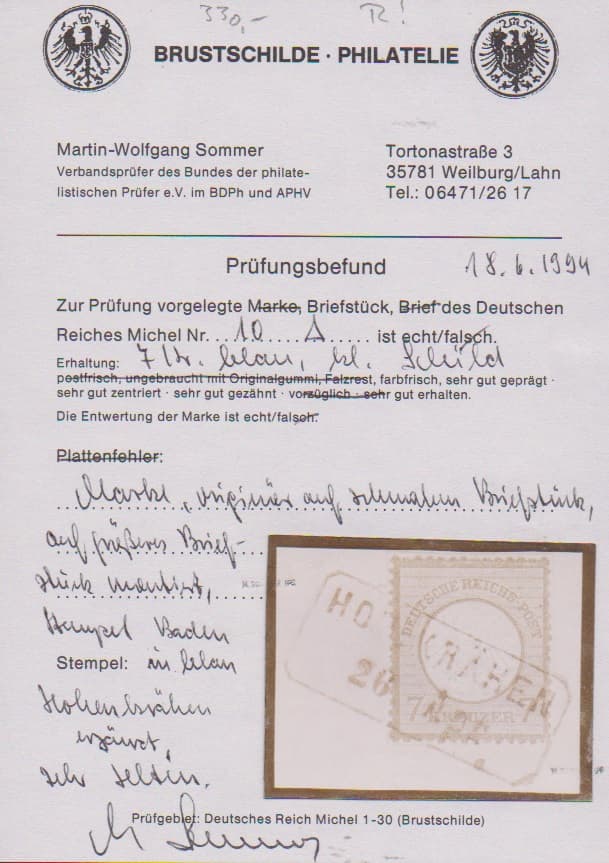 330,- R!
BRUSTSCHILDE · PHILATELIE
Martin-Wolfgang Sommer
Verbandsprüfer des Bundes der philate-
listischen Prüfer e.V. im BDPh und APHV
Tortonastraße 3
35781 Weilburg/Lahn
Tel.: 06471/26 17
Prüfungsbefund 18.6.1994
Zur Prüfung vorgelegte Marke, Briefstück, Brief des Deutschen
Reiches Michel Nr. 10 A ist echt/falsch.
7 Kr. blau, kl. Schild
Erhaltung:
postfrisch, ungebraucht mit Originalgummi, Falzrest, farbfrisch, sehr gut geprägt ·
sehr gut zentriert · sehr gut gezähnt · vorzüglich · sehr gut erhalten.
Die Entwertung der Marke ist echt/falsch.
Plattenfehler:
Marke, originär auf schmalem Briefstück,
auf größeres Brief-
stück montiert,
Stempel Baden
Stempel: in blau
Hohenkrähen
ergänzt,
sehr selten.
DEUTSCHE REICHS-POST
HO KRÄHEN
26
7 KREUZER
Prüfgebiet: Deutsches Reich Michel 1-30 (Brustschilde)
M Sommer